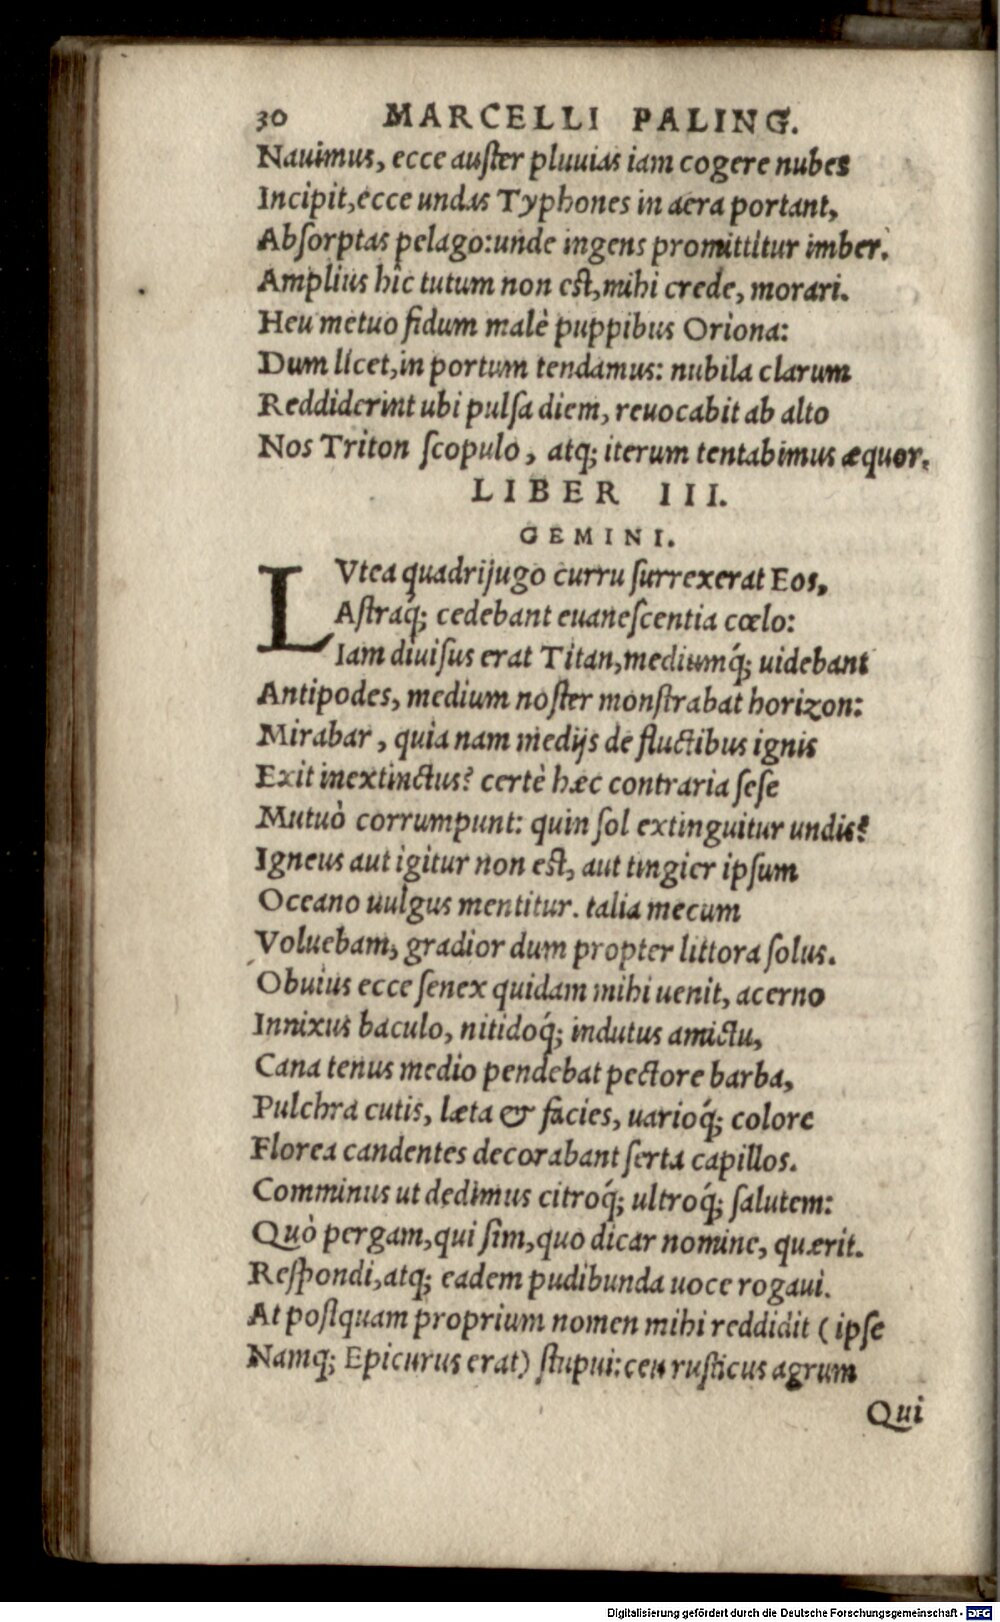 30 MARCELLI PALING.
Nauimus, ecce auster pluuias iam cogere nubes
Incipit, ecce undas Typhones in aera portant,
Absorptas pelago: unde ingens promittitur imber.
Amplius hîc tutum non est, mihi crede, morari.
Heu metuo fidum malè puppibus Oriona:
Dum licet, in portum tendamus: nubila clarum
Reddiderint ubi pulsa diem, reuocabit ab alto
Nos Triton scopulo, atq; iterum tentabimus æquor.
LIBER III.
GEMINI.
LVtea quadrijugo curru surrexerat Eos,
Astraq́; cedebant euanescentia cœlo:
Iam diuisus erat Titan, mediumq́; uidebant
Antipodes, medium noster monstrabat horizon:
Mirabar, quia nam medijs de fluctibus ignis
Exit inextinctus? certè hæc contraria sese
Mutuò corrumpunt: quin sol extinguitur undis?
Igneus aut igitur non est, aut tingier ipsum
Oceano uulgus mentitur. talia mecum
Voluebam, gradior dum propter littora solus.
Obuius ecce senex quidam mihi uenit, acerno
Innixus baculo, nitidoq́; indutus amictu,
Cana tenus medio pendebat pectore barba,
Pulchra cutis, læta & facies, uarioq́; colore
Florea candentes decorabant serta capillos.
Comminus ut dedimus citroq́; ultroq́; salutem:
Quò pergam, qui sim, quo dicar nomine, quærit.
Respondi, atq; eadem pudibunda uoce rogaui.
At postquam proprium nomen mihi reddidit (ipse
Namq; Epicurus erat) stupui: ceu rusticus agrum
Qui
Digitalisierung gefördert durch die Deutsche Forschungsgemeinschaft - DFG